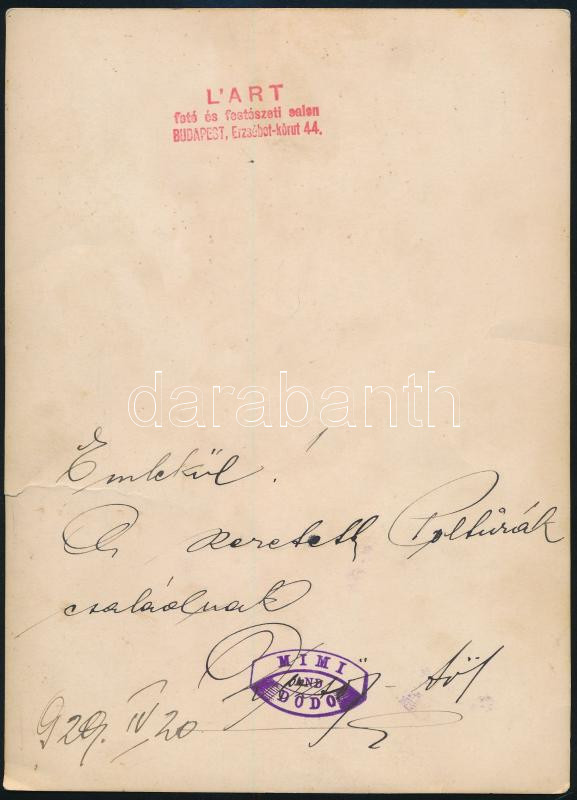 L'ART
fotó és festészeti salon
BUDAPEST, Erzsébet-körut 44.
darabanth
Emlékül!
A szeretett Poltúrák
családnak
MIMI
AND
DODO
-től
929. IV/20